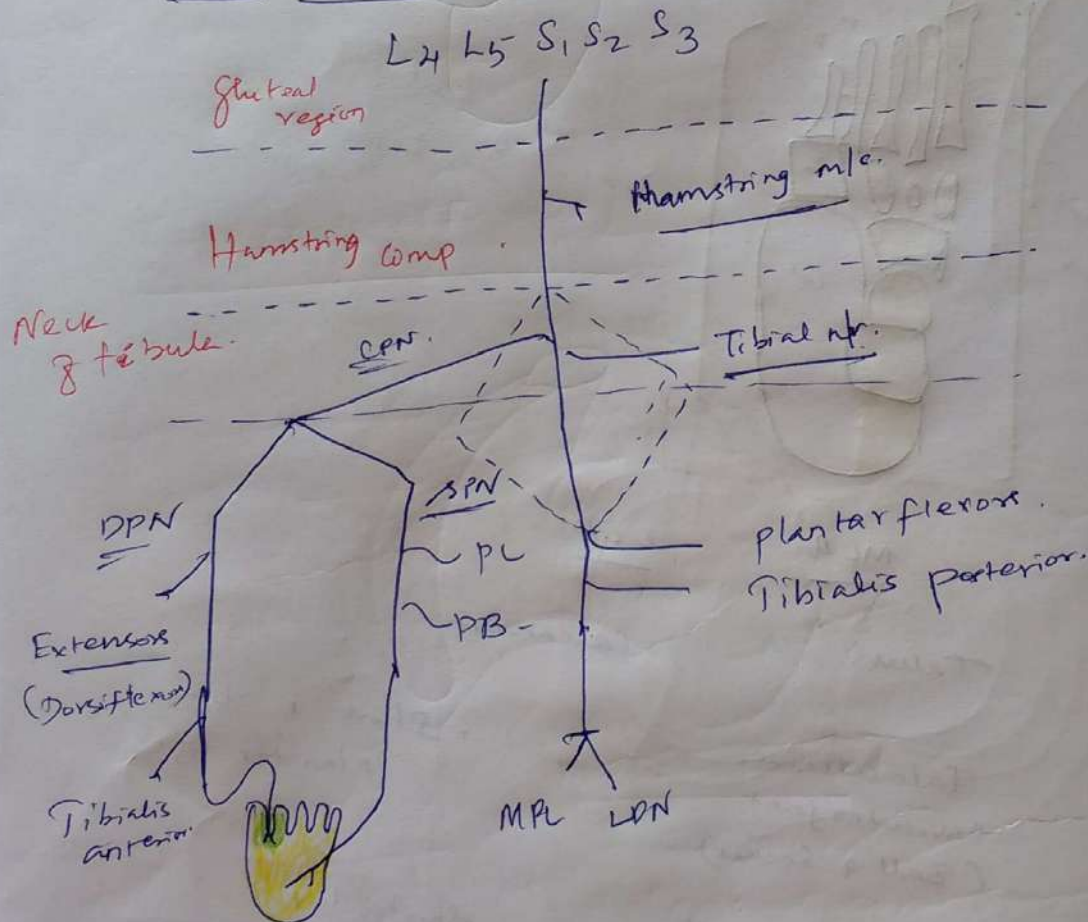 L4 L5 S1 S2 S3
Gluteal
region
Hamstring m/c.
Hamstring comp
Neck
of fibula.
CPN.
Tibial n/r.
DPN
SPN
PL
PB
plantarflexors.
Tibialis posterior.
Extensors
(Dorsiflexor)
Tibialis
anterior.
MPL LDN